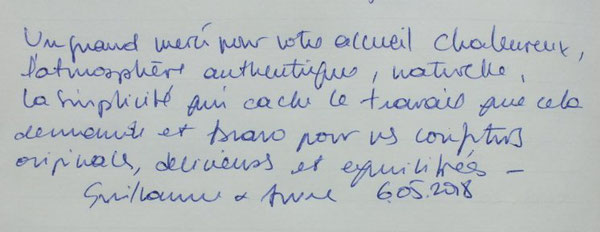 Un grand merci pour votre accueil chaleureux,
l'atmosphère authentique, naturelle,
la simplicité qui cache le travail que cela
demande et bravo pour vos confitures
originales, délicieuses et équilibrées –
Guillaume & Anne 6.05.2018